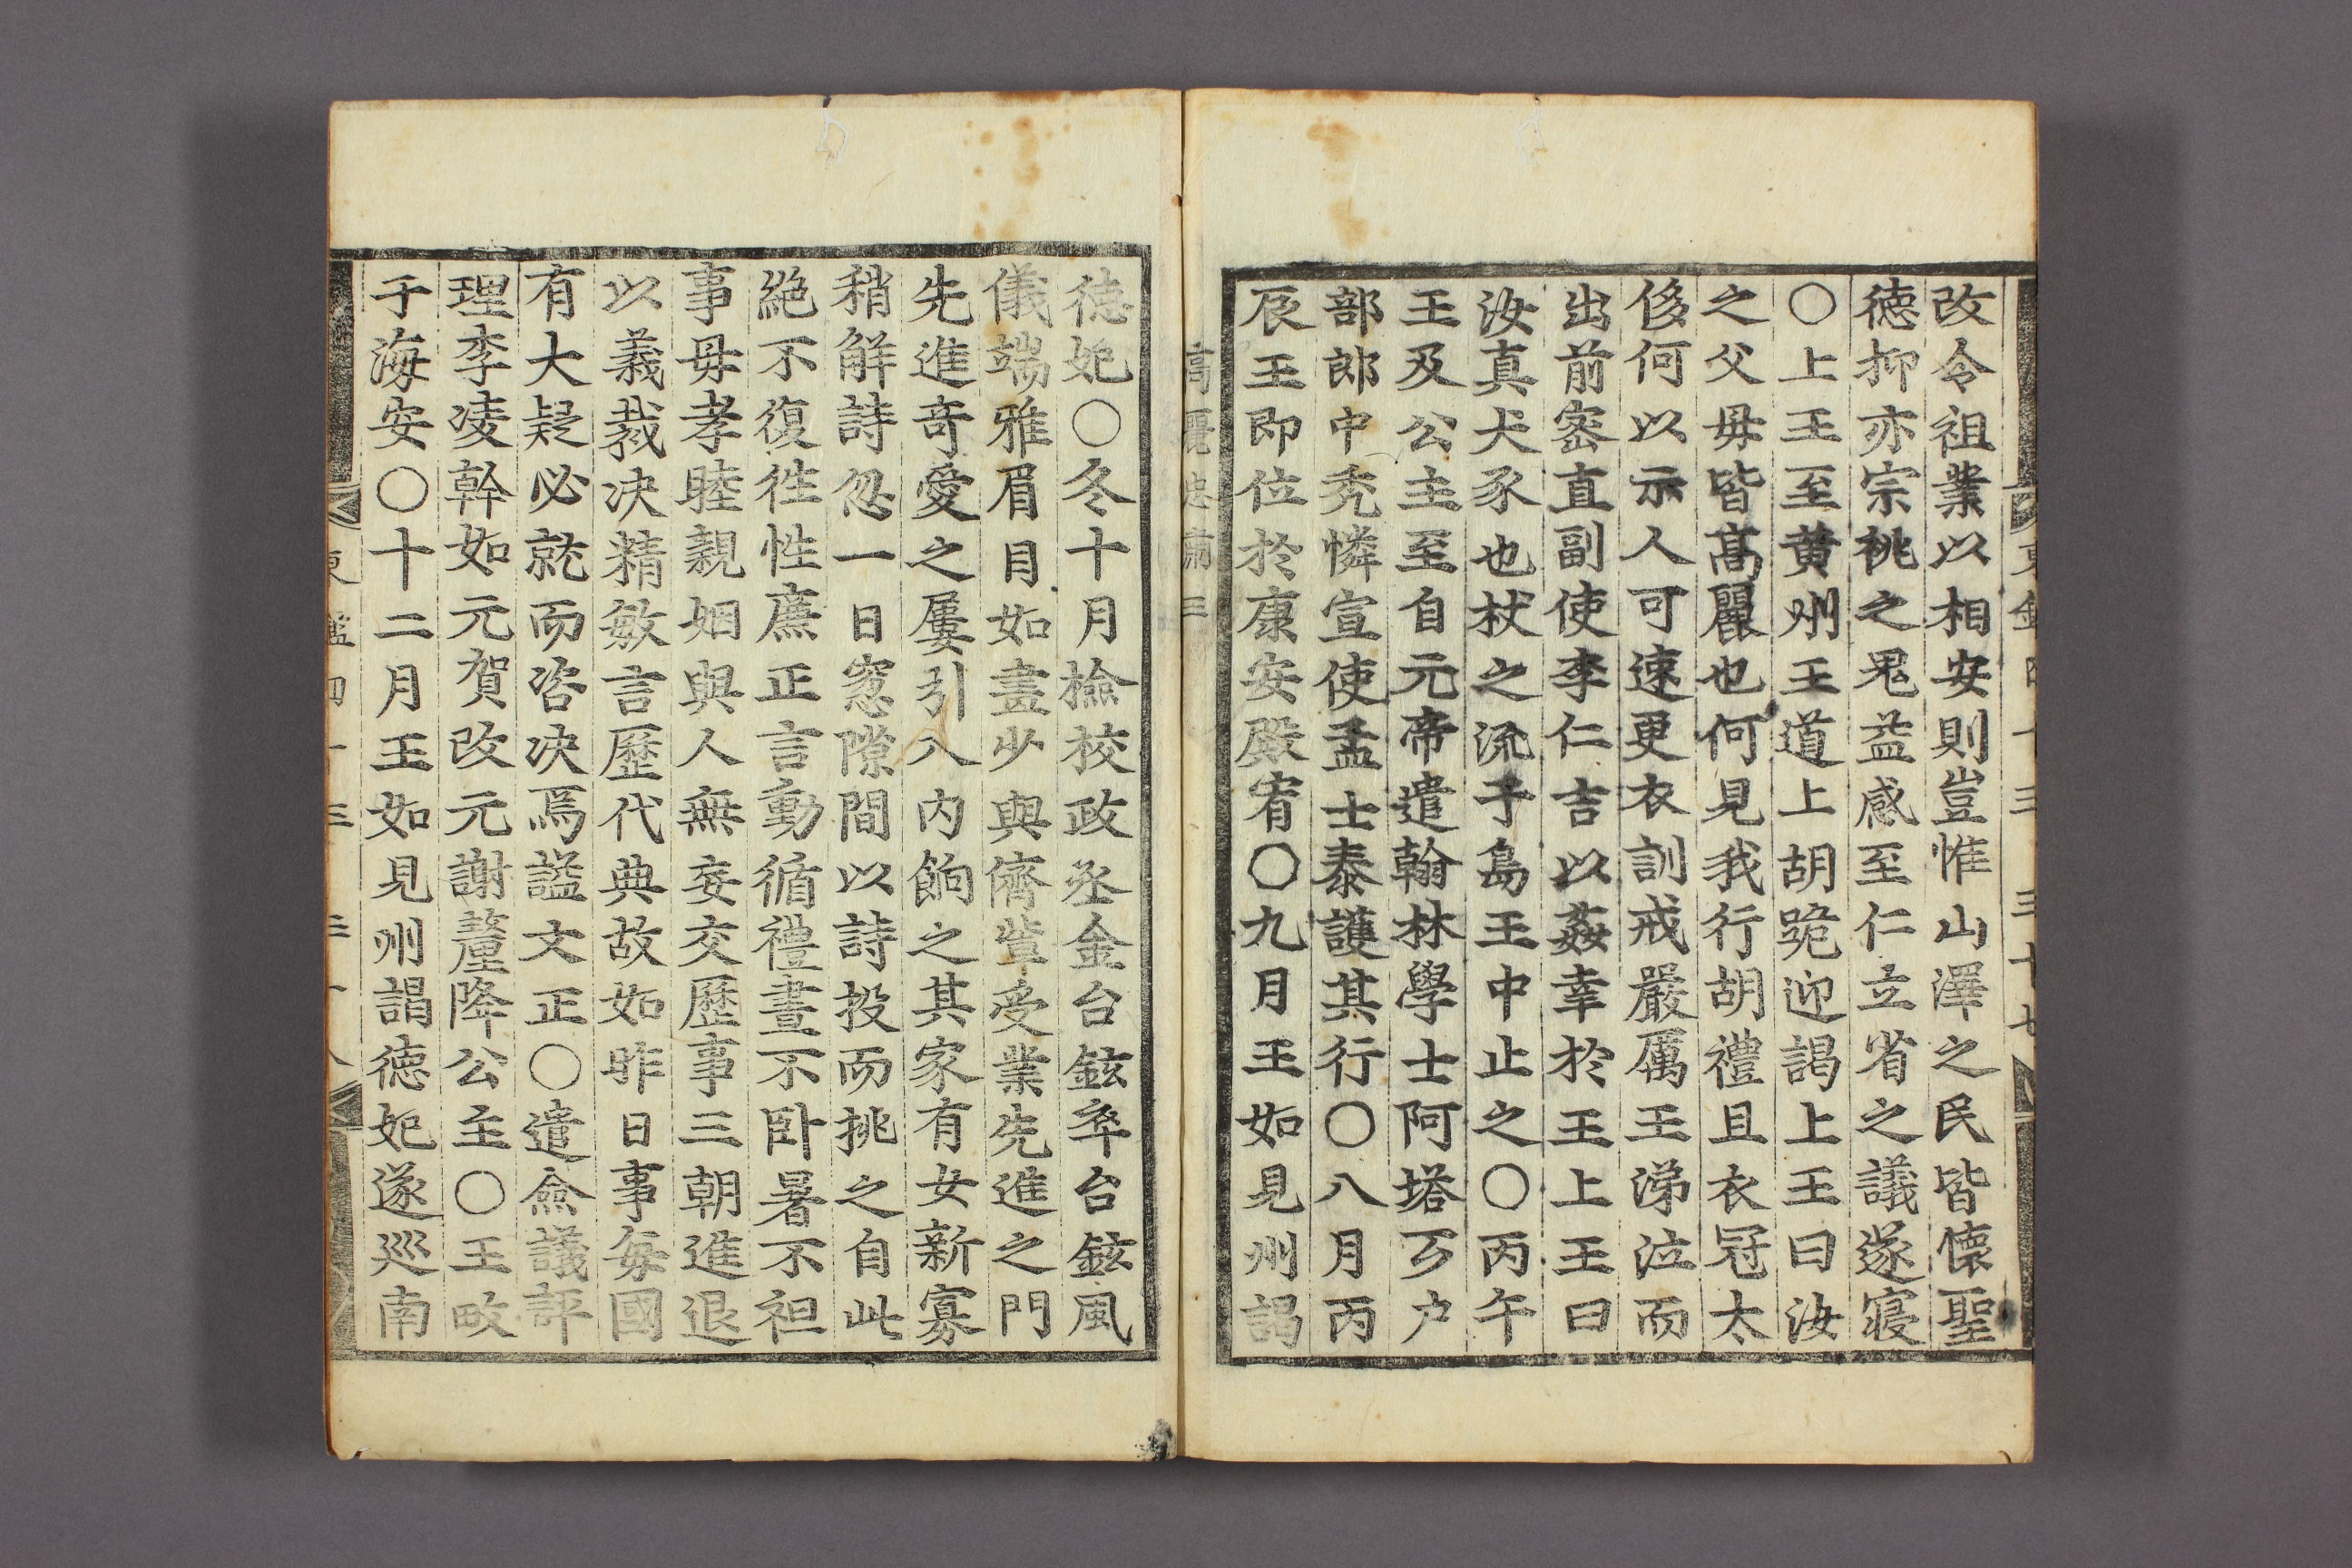 改令祖業以相安則豈惟山澤之民皆懷聖
德抑亦宗祧之鬼益感至仁立省之議遂寢
○上王至黃州王道上胡跪迎謁上王曰汝
之父母皆高麗也何見我行胡禮且衣冠太
侈何以示人可速更衣訓戒嚴厲王涕泣而
出前密直副使李仁吉以姦幸於王上王曰
汝真犬豕也杖之流于島王中止之○丙午
王及公主至自元帝遣翰林學士阿塔丂户
部郎中禿憐宣使孟士泰護其行○八月丙
辰王即位於康安殿宥○九月王如見州謁
高麗忠肅三
德妃○冬十月檢校政丞金台鉉卒台鉉風
儀端雅眉目如畫少與儕輩受業先進之門
先進奇愛之屢引入內餉之其家有女新寡
稍解詩忽一日窓隙間以詩投而挑之自此
絶不復徃性㢘正言動循禮晝不卧暑不袒
事毋孝睦親姻與人無妄交歷事三朝進退
以義裁决精敏言歷代典故如昨日事每國
有大疑必就而咨决焉謚文正○遣僉議評
理李凌幹如元賀改元謝釐降公主○王畋
于海安○十二月王如見州謁德妃遂巡南